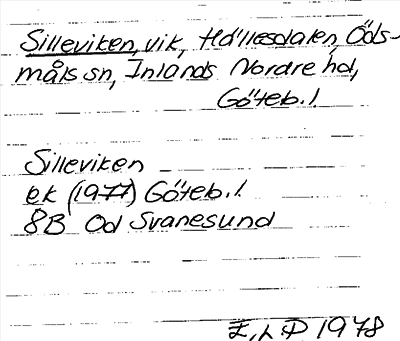 Silleviken, vik, Hällesdalen, Öds-
måls sn, Inlands Nordre hd,
Göteb. l.
Silleviken
ek (1977) Göteb. l.
8B Od Svanesund
1978